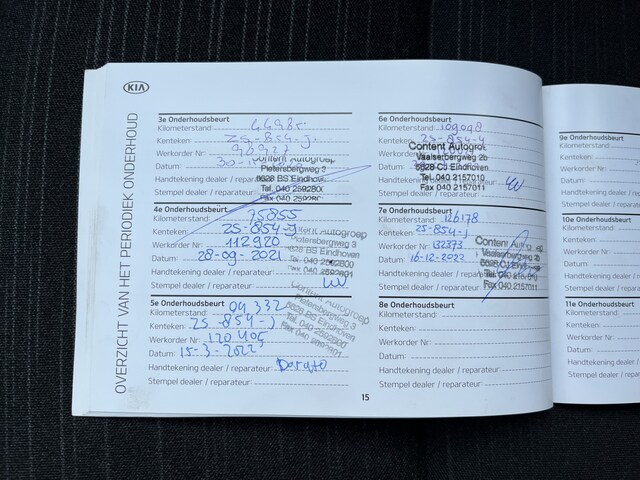 KIA
OVERZICHT VAN HET PERIODIEK ONDERHOUD
3e Onderhoudsbeurt
Kilometerstand:
Kenteken: ZS-854-j.
Werkorder Nr:
Datum:
Handtekening dealer / reparateur:
Stempel dealer / reparateur:
Content Autogroep
Pietersbergweg 3
5628 BS Eindhoven
Tel. 040 2592800
4e Onderhoudsbeurt
Kilometerstand: 75855
Kenteken: ZS-854-j
Werkorder Nr: 112920
Datum: 28-09-2021
Handtekening dealer / reparateur:
Stempel dealer / reparateur:
Content Autogroep
Pietersbergweg 3
5628 BS Eindhoven
5e Onderhoudsbeurt
Kilometerstand:
Kenteken: ZS-854-j
Werkorder Nr:
Datum: 15-3-2022
Handtekening dealer / reparateur:
Stempel dealer / reparateur:
Content Autogroep
Pietersbergweg 3
5628 BS Eindhoven
6e Onderhoudsbeurt
Kilometerstand: 109098
Kenteken:
Werkorder Nr:
Datum:
Handtekening dealer / reparateur:
Stempel dealer / reparateur:
Content Autogroep
Vaalserbergweg 2b
5628 CJ Eindhoven
Tel. 040 2157010
Fax 040 2157011
7e Onderhoudsbeurt
Kilometerstand: 126178
Kenteken: ZS-854-j
Werkorder Nr: 132373
Datum: 16-12-2022
Handtekening dealer / reparateur:
Stempel dealer / reparateur:
Content
Vaalserbergweg 2b
5628 CJ Eindhoven
Fax 040 2157011
8e Onderhoudsbeurt
Kilometerstand:
Kenteken:
Werkorder Nr:
Datum:
Handtekening dealer / reparateur:
Stempel dealer / reparateur:
15
9e Onderhoudsbeurt
Kilometerstand:
Kenteken:
Werkorder Nr:
Datum:
Handtekening dealer /
Stempel dealer / repara
10e Onderhoudsbeurt
Kilometerstand:
Kenteken:
Werkorder Nr:
Datum:
Handtekening dealer /
Stempel dealer / repar
11e Onderhoudsbeurt
Kilometerstand:
Kenteken:
Werkorder Nr:
Datum:
Handtekening dealer /
Stempel dealer / repar